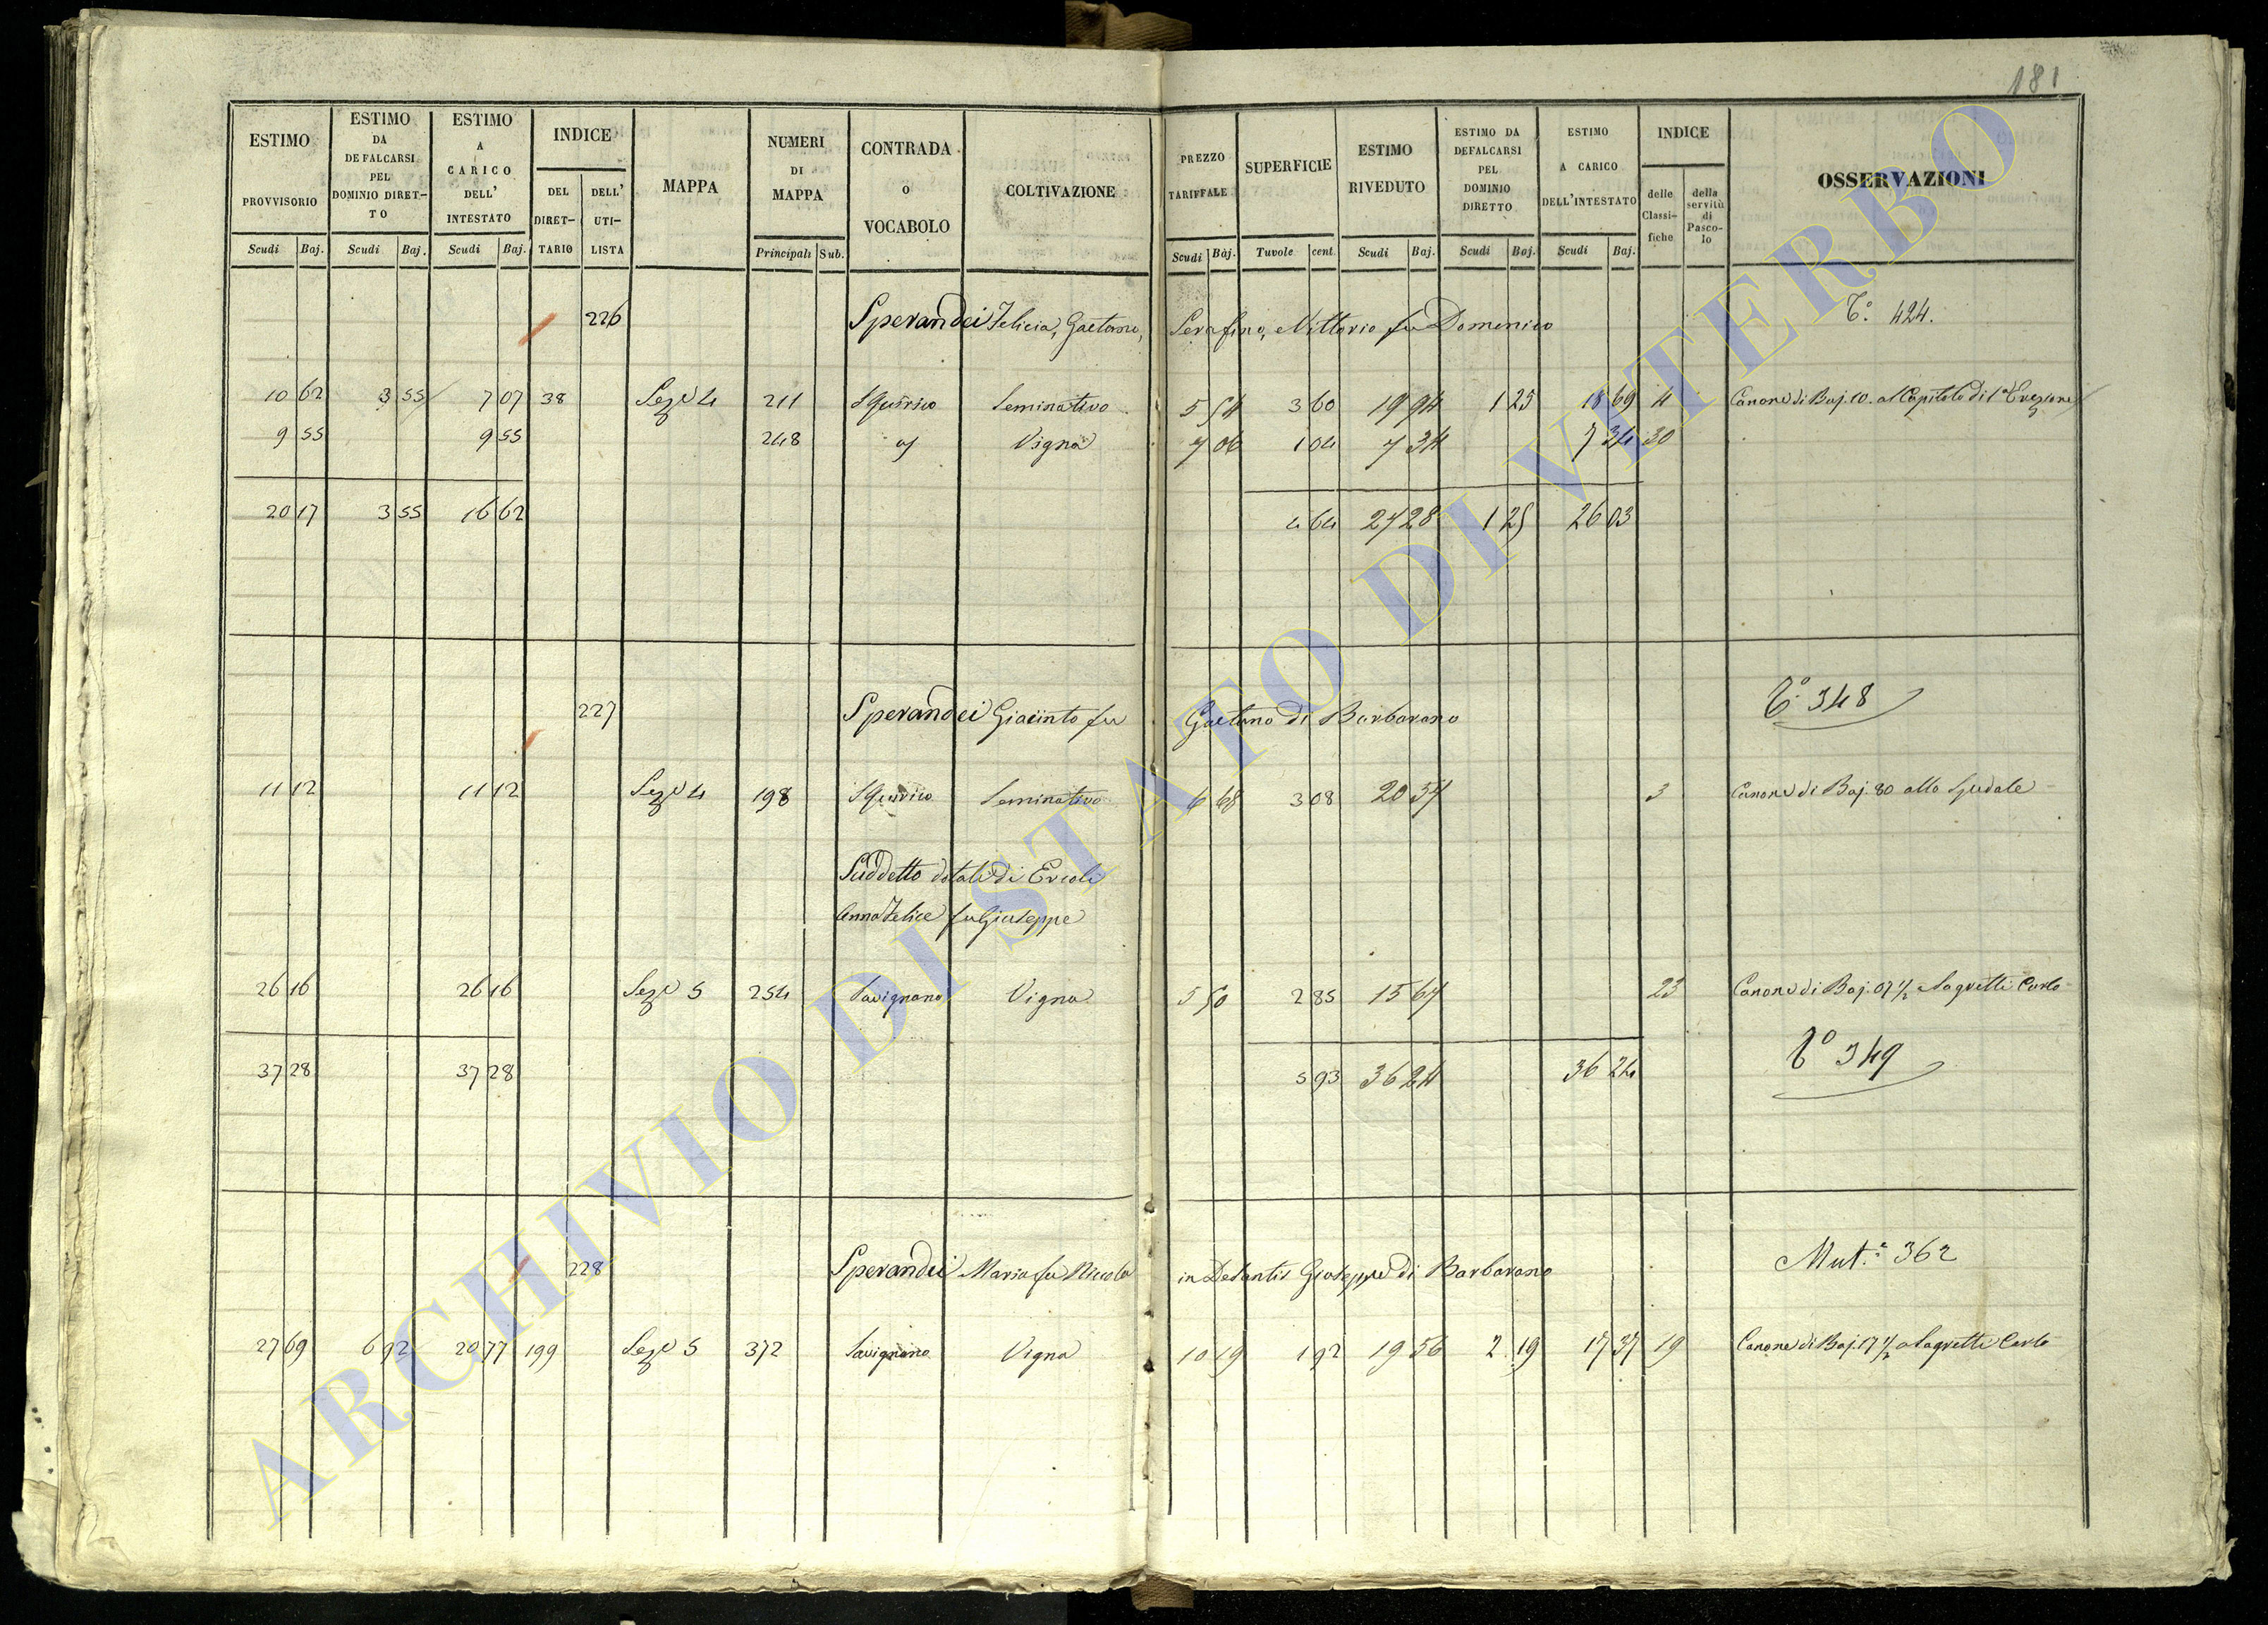 181
ESTIMO PROVVISORIO | ESTIMO DA DEFALCARSI PEL DOMINIO DIRET-TO | ESTIMO A CARICO DELL' INTESTATO | INDICE DEL DIRET-TARIO | DELL' UTI-LISTA | MAPPA | NUMERI DI MAPPA | CONTRADA o VOCABOLO | COLTIVAZIONE | PREZZO TARIFFALE | SUPERFICIE | ESTIMO RIVEDUTO | ESTIMO DA DEFALCARSI PEL DOMINIO DIRETTO | ESTIMO A CARICO DELL'INTESTATO | INDICE delle Classi-fiche | della servitù di Pasco-lo | OSSERVAZIONI
Scudi | Baj. | Scudi | Baj. | Scudi | Baj. | Principali | Sub. | Scudi | Baj. | Tavole | cent. | Scudi | Baj. | Scudi | Baj. | Scudi | Baj.
226 Sperandei Felicia, Gaetano, Serafino, Vittorio fu Domenico T.º 424.
10 62 3 55 7 07 38 Sez.e 4 211 S Quirico Seminativo 5 54 3 60 19 94 1 25 18 69 4 Canone di Baj. 10. al Capitolo di 1a Erezione
9 55 9 55 248 Vigna 7 06 1 04 7 34 7 34 30
20 17 3 55 16 62 4 64 27 28 1 25 26 03
227 Sperandei Giacinto fu Gaetano di Barbarano T.º 348
11 12 11 12 Sez.e 4 198 S Quirico Seminativo 6 68 3 08 20 57 3 Canone di Baj. 80 allo Spedale
Suddetto dotale di Ercoli
Anna Felice fu Giuseppe
26 16 26 16 Sez.e 5 254 Savignano Vigna 5 50 2 85 15 67 23 Canone di Baj. 07 1/2 a Sagretti Carlo
T.º 349
37 28 37 28 5 93 36 24 36 24
228 Sperandei Maria fu Niccola in Desantis Giuseppe di Barbarano Mut.e 362
27 69 6 92 20 77 199 Sez.e 5 372 Savignano Vigna 10 19 1 92 19 56 2 19 17 37 19 Canone di Baj. 17 1/2 a Sagretti Carlo
ARCHIVIO DI STATO DI VITERBO